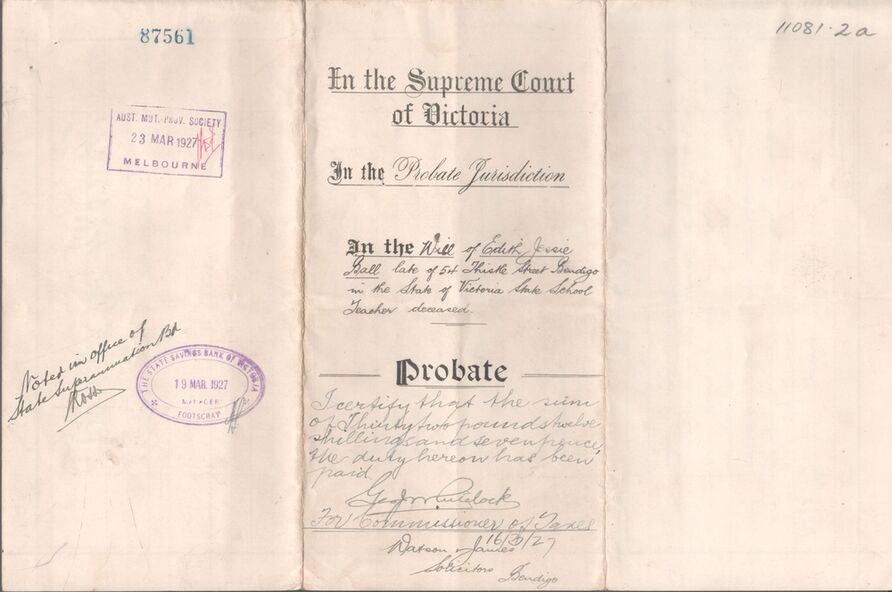 87561
AUST. MUT. PROV. SOCIETY
23 MAR 1927
MELBOURNE
Noted in office of
State Superannuation Bd
THE STATE SAVINGS BANK OF VICTORIA
19 MAR. 1927
MANAGER
FOOTSCRAY
In the Supreme Court
of Victoria
In the Probate Jurisdiction
In the Will of Edith Jessie
Ball late of 54 Thistle Street Bendigo
in the State of Victoria State School
Teacher deceased.
Probate
I certify that the sum
of Thirty two pounds twelve
shillings and seven pence,
the duty hereon has been
paid
For Commissioner of Taxes
16/3/27
Watson & James
Solicitors Bendigo
11081.2a